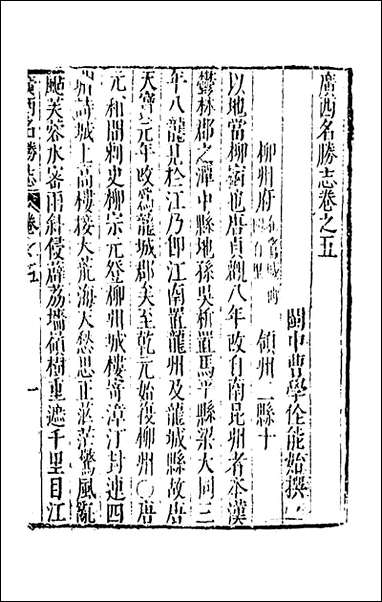 廣西名勝志卷之五
閩中曹學佺能始撰
柳州府 領州二縣十
以地當柳宿也唐貞觀八年改自南昆州者本漢
鬱林郡之潭中縣地孫吳析置馬平縣梁大同三
年八龍見於江乃卽江南置龍州及龍城縣故唐
天寶元年改爲龍城郡矣至乾元始復柳州○唐
元和間刺史柳宗元登柳州城樓寄漳汀封連四
州詩城上高樓接大荒海天愁思正茫茫驚風亂
颭芙蓉水密雨斜侵薜荔墻嶺樹重遮千里目江
廣西名勝志 卷之五 一